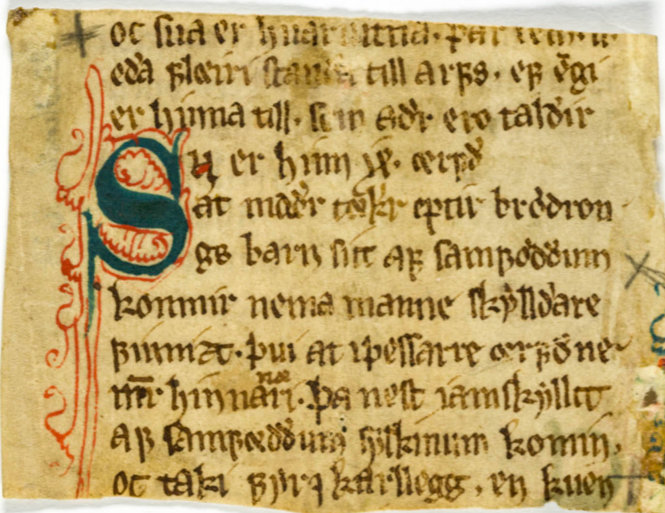 oc sua er huar
eda fleiri standa till arfs. ef ęgi
er hinna till. sem adr ero taldir
Su er hinn ix. ærfd
at madr tękr eptir brodron
gs barn sitt af samfǫddum
komnir nema manne skylldare
finnizt. þui at i þessarre ærfd ne
mr hinn nanari. þa nest iamskyllt
af samfæddum sylkinum komin.
oc taki fyri karllegg. en kuen